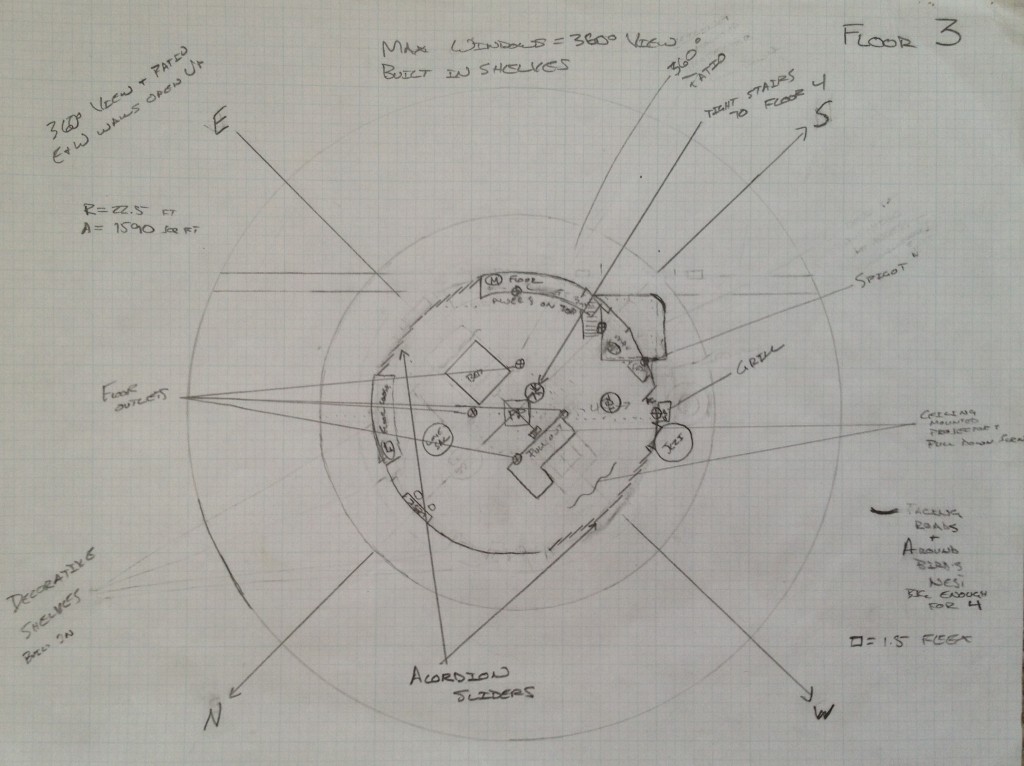 FLOOR 3
MAX WINDOWS = 360° VIEW
BUILT IN SHELVES
360°
PATIO
TIGHT STAIRS
TO FLOOR 4
360° VIEW + PATIO
E+W WALLS OPEN UP
E
S
R = 22.5 FT
A = 1590 SQR FT
SPIGOT
FLOOR
BED
GRILL
FLOOR
OUTLETS
CEILING
MOUNTED
PULL DOWN
FACING
ROADS
+
AROUND
BIRDS
NEST
BIG ENOUGH
FOR 4
DECORATIVE
SHELVES
BUILT IN
□ = 1.5 FEET
ACORDION
SLIDERS
N
W